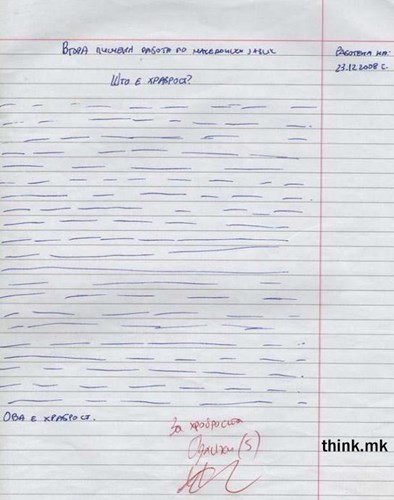 Втора писмена работа по македонски јазик
Работена на:
23.12.2008 г.
Што е храброст?
Ова е храброст.
За храброста
Одличен (5)
think.mk